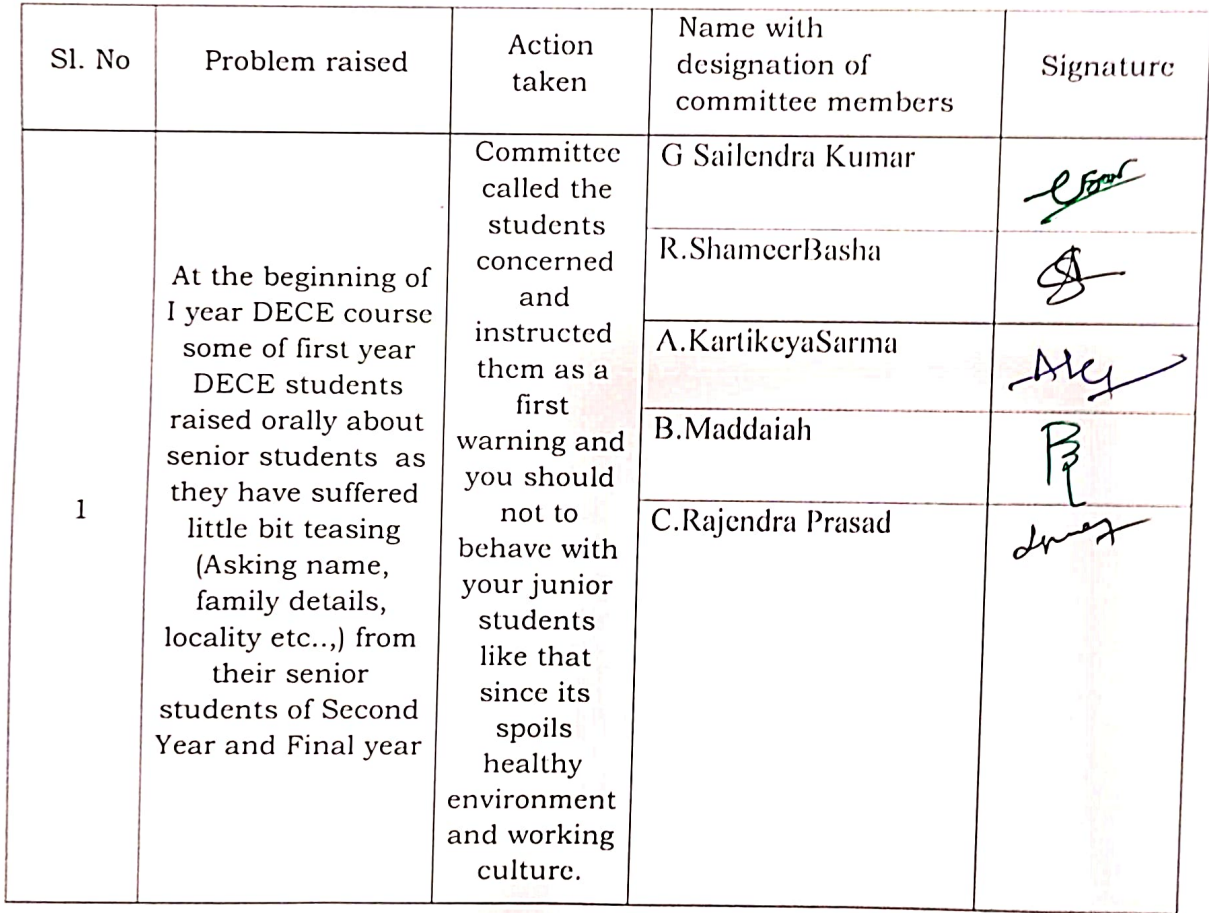 Sl. No
Problem raised
Action
taken
Name with
designation of
committee members
Signature
1
At the beginning of
I year DECE course
some of first year
DECE students
raised orally about
senior students as
they have suffered
little bit teasing
(Asking name,
family details,
locality etc..,) from
their senior
students of Second
Year and Final year
Committee
called the
students
concerned
and
instructed
them as a
first
warning and
you should
not to
behave with
your junior
students
like that
since its
spoils
healthy
environment
and working
culture.
G Sailendra Kumar
R.ShameerBasha
A.KartikeyaSarma
B.Maddaiah
C.Rajendra Prasad